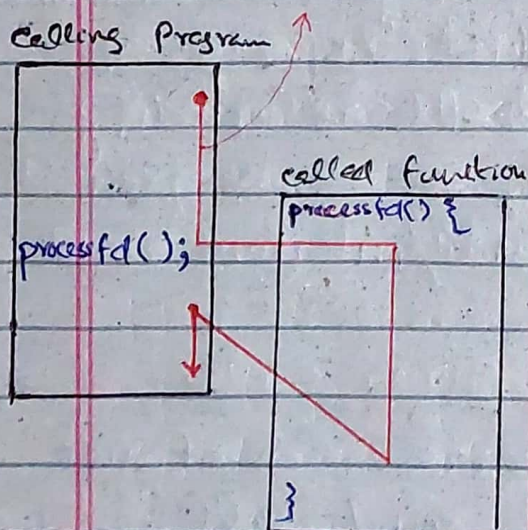 Calling Program
called function
processfd() {
processfd();
}